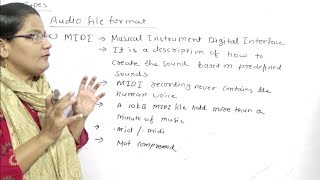 Types
Audio file format
MIDI → Musical Instrument Digital Interface
→ It is a description of how to
create the sound based on predefined
sounds
→ MIDI recording never contains the
human voice
→ A 10KB MIDI file hold more than a
minute of music
→ .mid / .midi
→ Not compressed